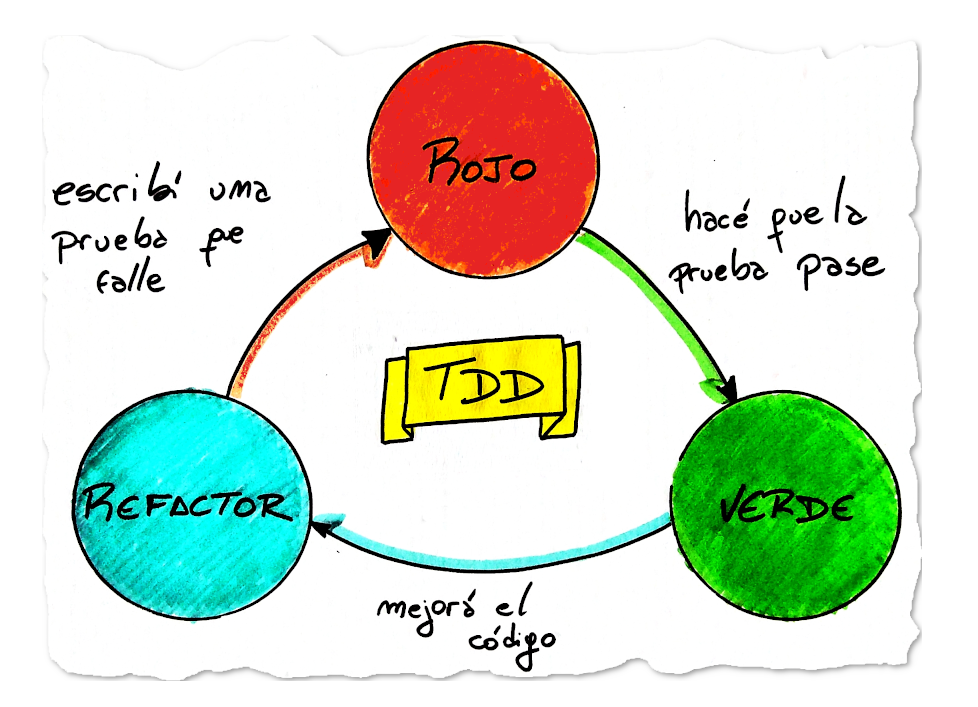 ROJO
escribí una
prueba que
falle
hacé que la
prueba pase
TDD
REFACTOR
VERDE
mejorá el
código